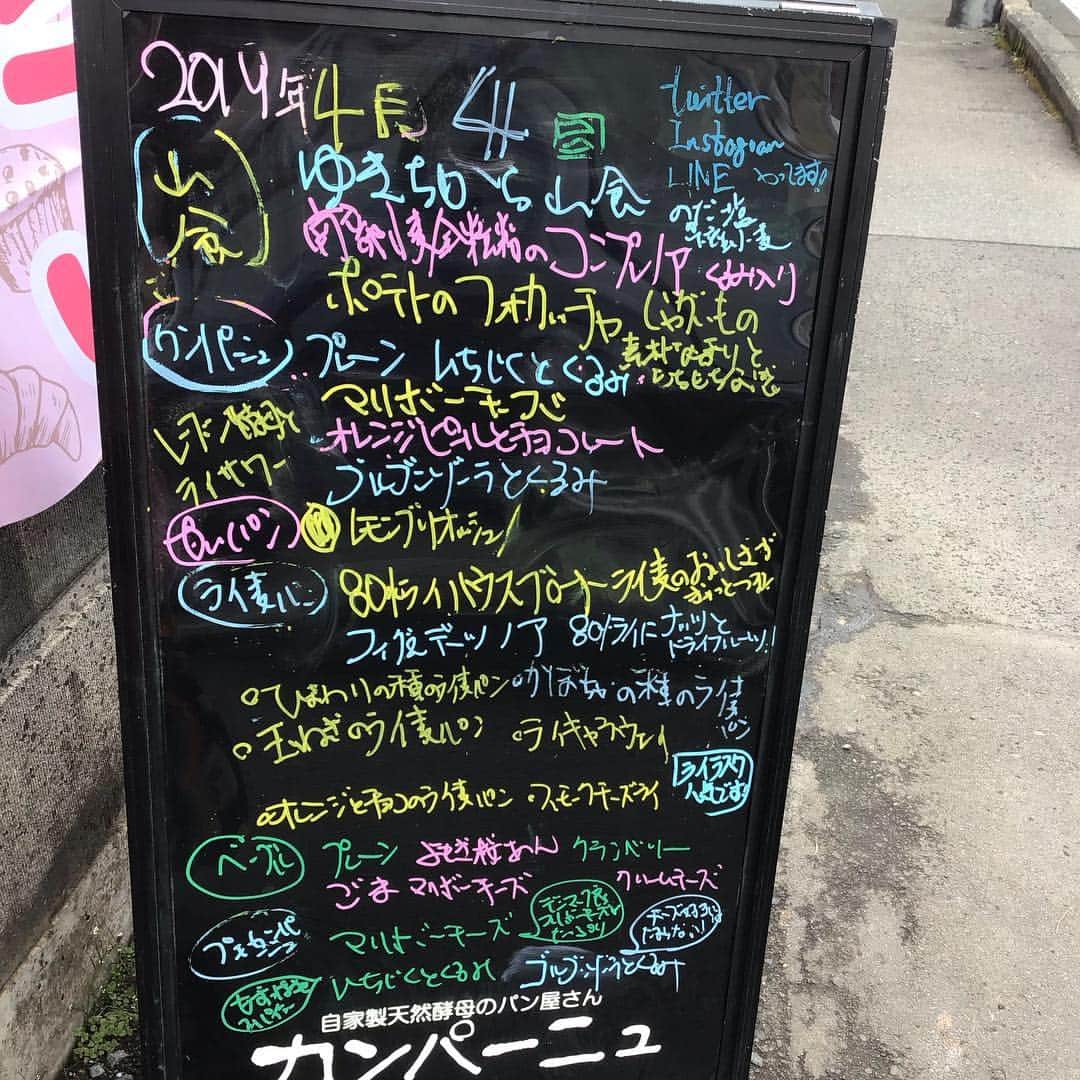 2019年4月4日
twitter
Instagram
LINE やってます!
山食
ゆきちから山食
南部小麦全粒粉のコンプレノア くるみ入り
ポテトのフォカッチャ じゃがいもの
カンパーニュ
プレーン いちじくとくるみ
マリボーチーズ
レーズン酵母と
ライサワー
オレンジピールとチョコレート
ゴルゴンゾーラとくるみ
甘いパン
レモンブリオッシュ
ライ麦パン
80%ライハウスブロート ライ麦のおいしさが
ぎゅっとつまり
フィグデーツノア 80%ライにナッツと
ドライフルーツ!
ひまわりの種のライ麦パン かぼちゃの種のライ麦パン
玉ねぎのライ麦パン ライキャラウェイ
ライラスク
人気です!
オレンジとチョコのライ麦パン スモークチーズライ
ベーグル
プレーン よもぎ粒あん クランベリー
ごま マリボーチーズ クリームチーズ
プチカンパーニュ
マリボーチーズ
いちじくとくるみ ゴルゴンゾーラとくるみ
自家製天然酵母のパン屋さん
カンパーニュ